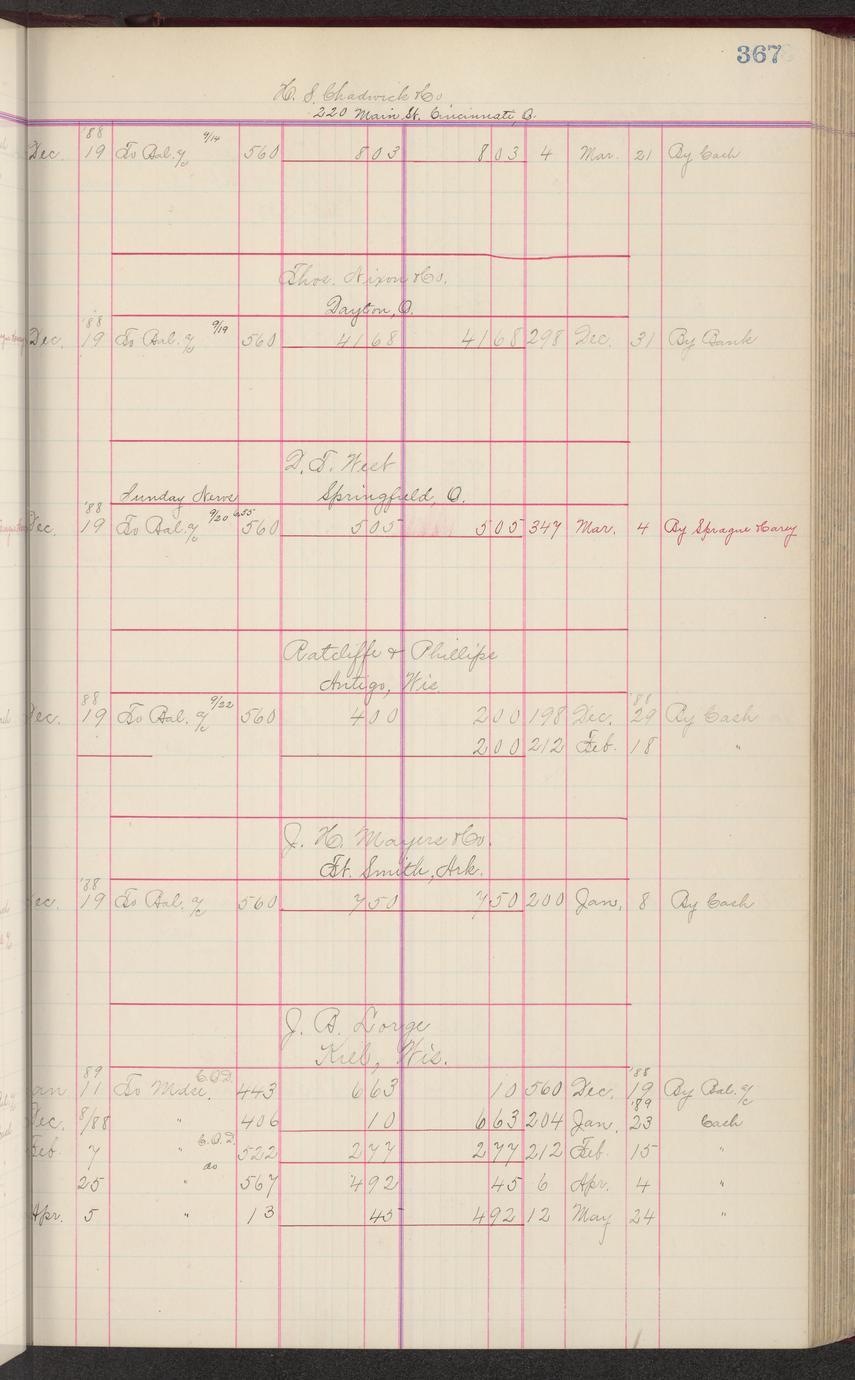 367
H. S. Chadwick & Co
220 Main St. Cincinnati, O.
'88 9/14
Dec. 19 To Bal. a/c 560 803 803 4 Mar. 21 By Cash
Thos. Nixon & Co.
Dayton, O.
'88 9/19
Dec. 19 To Bal. a/c 560 4168 4168 298 Dec. 31 By Bank
D. T. West
Sunday Nerve Springfield, O.
'88 9/20 655
Dec. 19 To Bal. a/c 560 505 505 347 Mar. 4 By Sprague & Carey
Ratcliffe & Phillips
Antigo, Wis.
88 9/22 '88
Dec. 19 To Bal. a/c 560 400 200 198 Dec. 29 By Cash
200 212 Feb. 18 "
J. H. Mayers & Co.
Ft. Smith, Ark.
'88
Dec. 19 To Bal. a/c 560 750 750 200 Jan. 8 By Cash
J. B. Lorge
Kiel, Wis.
89 C.O.D. '88
Jan 11 To Mdse. 443 663 10 560 Dec. 19 By Bal. a/c
'89
Dec. 8/88 " 406 10 663 204 Jan. 23 Cash
C.O.D.
Feb. 7 " 522 277 277 212 Feb. 15 "
do
25 " 567 492 45 6 Apr. 4 "
Apr. 5 " 13 45 492 12 May 24 "